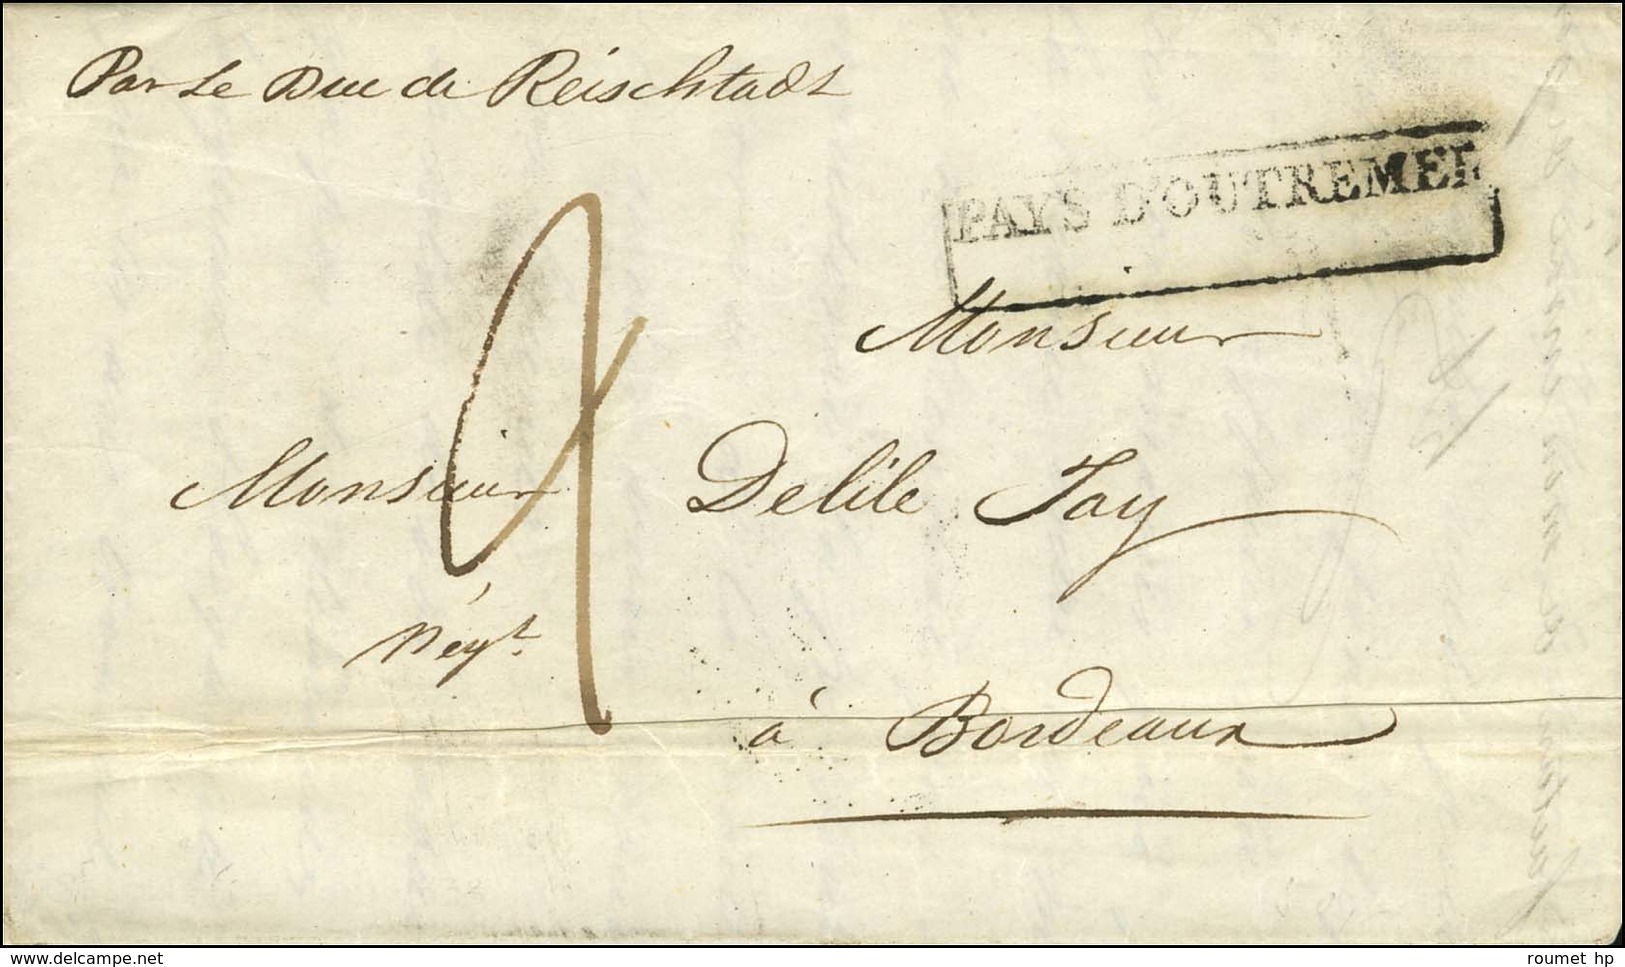 Par Le Duc de Reischtadt
PAYS D'OUTREMER
Monsieur
Monsieur Delile Jay
Négt.
à Bordeaux
delcampe.net
roumet hp